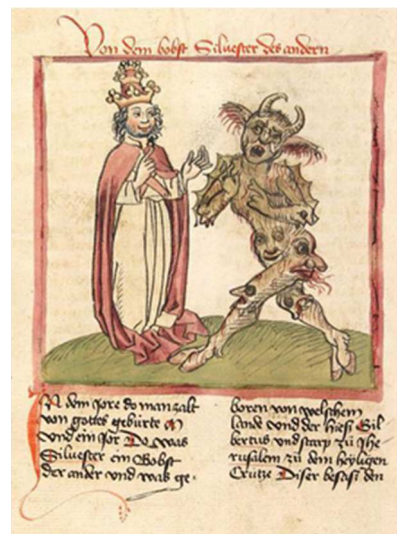 Von dem bobst Siluester des andern
IN dem Jore do man zalt
von gottes gebürte M
Vnd ein jor Do was
Siluester ein Bobst
der ander vnd was ge-
boren von welschem
lande vnd der hies Gil
bertus vnd starp zü Jhe
rusalem zü dem heyligen
Crütze Diser besass den